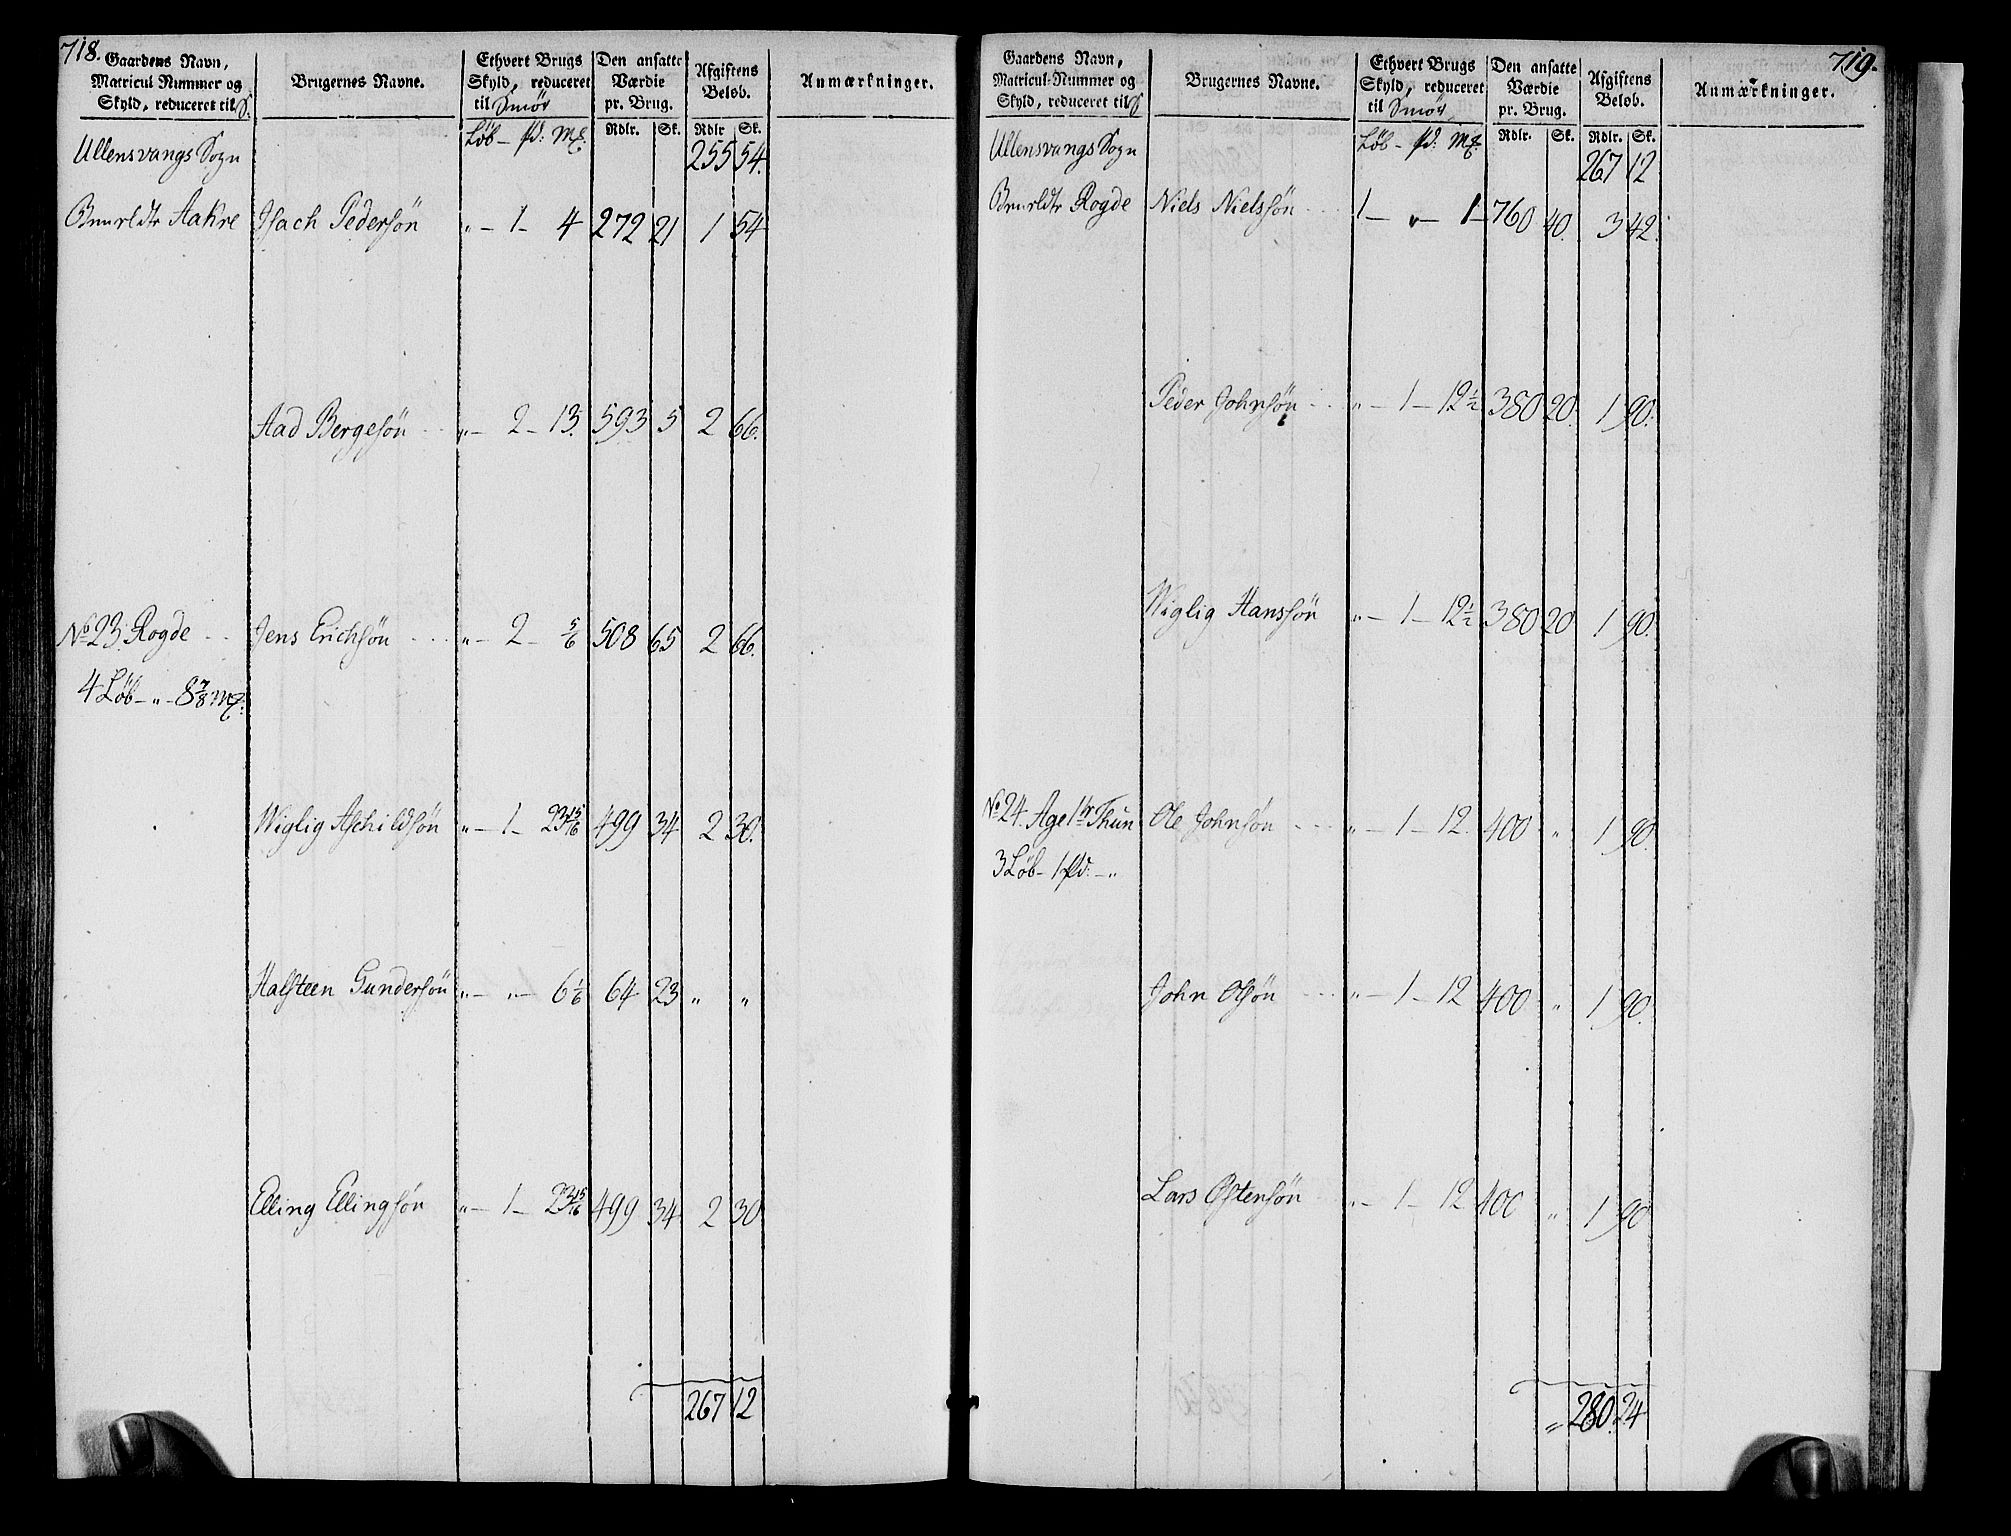 718.
Gaardens Navn, Matricul Nummer og Skyld, reduceret til S.
Brugernes Navne.
Ethvert Brugs Skyld, reduceret til Smör
Den ansatte Værdie pr. Brug.
Afgiftens Beløb.
Anmærkninger.
Løb - Pd: Mk: Rdlr. Sk. Rdlr Sk.
Ullensvangs Sogn 255 54.
Aakre Isach Pedersøn „ - 1 - 4 272 21 1 54
Aad Bergesøn „ - 2 - 13. 593 5 2 66.
No 23. Rogde Jens Erichsøn „ - 2 - 5/6 508 65 2 66.
4 Løb - „ - 8 7/8 Mk:
Wiglig Aschildsøn „ - 1 - 23 15/16 499 34 2 30.
Halsteen Gundersøn „ - „ - 6 1/6 64 23 „ „
Elling Ellingsøn „ - 1 - 23 15/16 499 34 2 30
267 12
719.
Gaardens Navn, Matricul-Nummer og Skyld, reduceret til S
Brugernes Navne.
Ethvert Brugs Skyld, reduceret til Smör
Den ansatte Værdie pr. Brug.
Afgiftens Beløb.
Anmærkninger.
Løb - Pd: Mk: Rdlr. Sk. Rdlr. Sk.
Ullensvangs Sogn 267 12
Rogde Niels Nielssøn 1 - „ - 1 - 760 40. 3 42.
Peder Johnsøn „ - 1 - 12 1/2 380 20. 1 90.
Wiglig Hanssøn „ - 1 - 12 1/2 380 20 1 90.
No 24. Age 1 br Thun Ole Johnsøn „ - 1 - 12 400 „ 1 90.
3 Løb - 1 Pd: - „
John Olsøn „ - 1 - 12 400 „ 1 90.
Lars Østensøn „ - 1 - 12 400 „ 1 90
280. 24